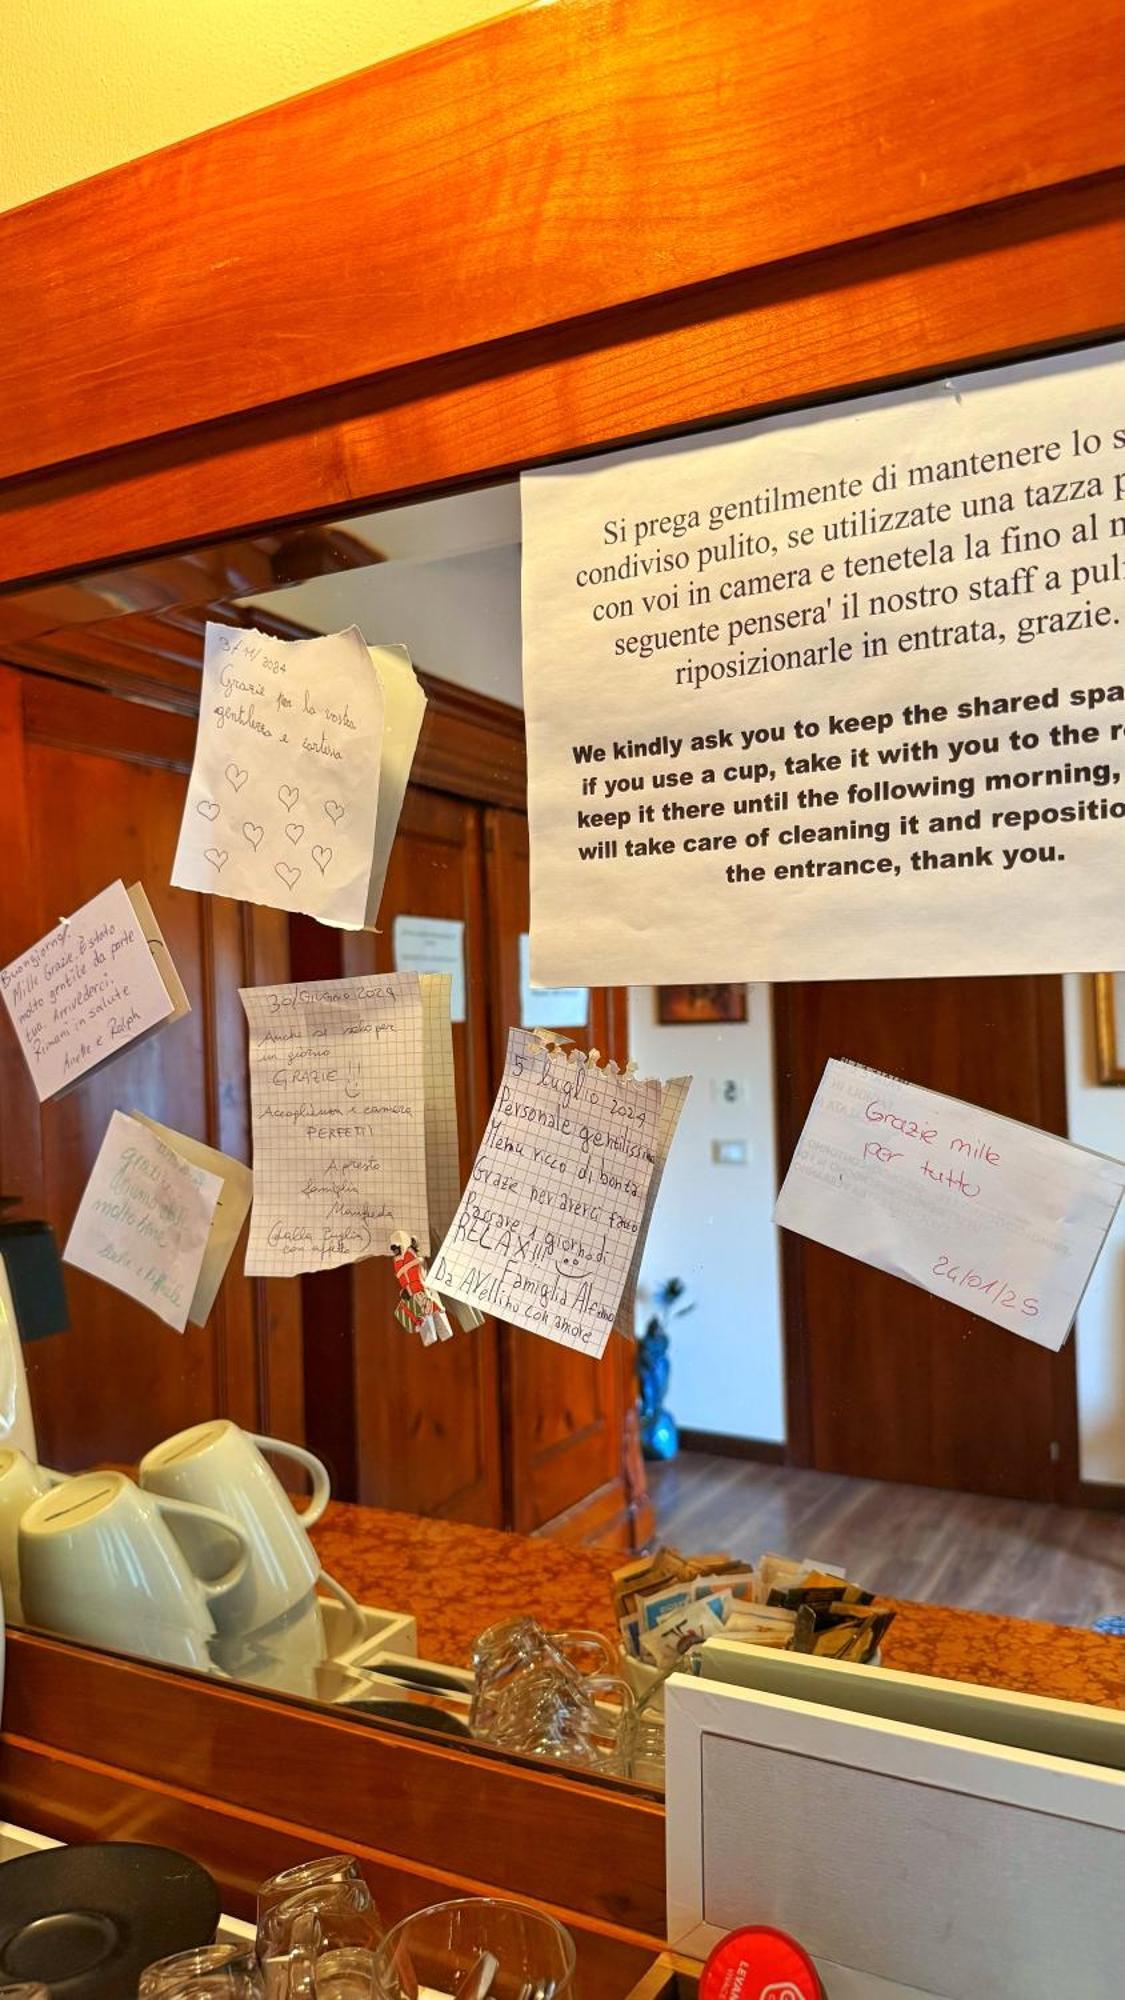 Si prega gentilmente di mantenere lo s
condiviso pulito, se utilizzate una tazza p
con voi in camera e tenetela la fino al m
seguente pensera' il nostro staff a puli
riposizionarle in entrata, grazie.
We kindly ask you to keep the shared spa
if you use a cup, take it with you to the r
keep it there until the following morning,
will take care of cleaning it and repositio
the entrance, thank you.
3/11/2024
Grazie per la vostra
gentilezza e cortesia
Buongiorno!
Mille Grazie. È stato
molto gentile da parte
tua. Arrivederci.
Rimani in salute
Anette e Ralph
30/Giugno 2024
Anche se solo per
un giorno
GRAZIE!!!
Accoglienza e camera
PERFETTI
A presto
famiglia
(dalla Puglia)
con affetto
5 luglio 2024
Personale gentilissimo
Menu ricco di bontà
Grazie per averci fatto
Passare 1 giorno di
RELAX!!!
Famiglia Alfano
Da Avellino con amore
grazie
molto bene
Grazie mille
per tutto
24/01/25
LEVAN